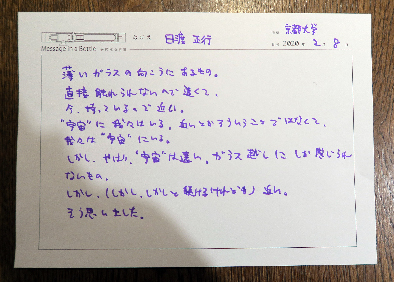 なまえ 目渡 正行
京都大学
Message in a Bottle
2020年 2. 8.
薄いガラスの向こうにあるもの。
直接触れられないので遠くて、
今、持っているので近い。
"宇宙"に我々はいる。近いとかそういうことではなくて、
我々は"宇宙"にいる。
しかし、やはり、"宇宙"は遠い。ガラス越しにしか感じられ
ないもの。
しかし、(しかし、しかしと続けるけれども) 近い。
そう思いました。